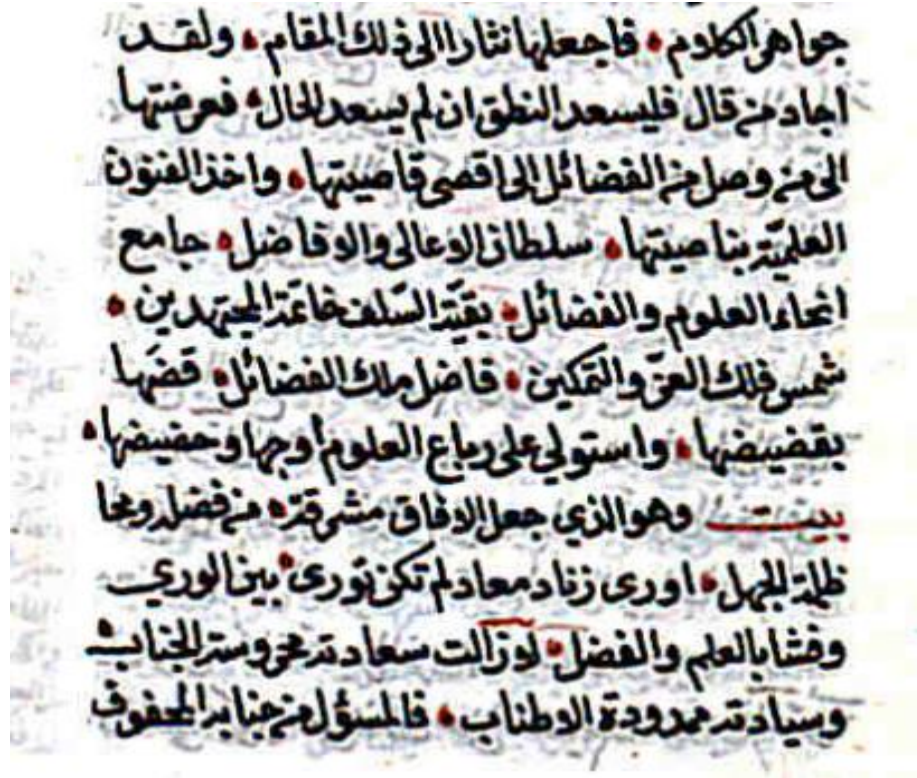 جواهر الكلام • فاجعلها نثارا الى ذلك المقام • ولقد
اجاد من قال فليسعد النطق ان لم يسعد الحال • فعرضتها
الى من وصل من الفضائل الى اقصى قاصيتها • واخذ الفنون
العلميّة بناصيتها • سلطان الاعالى والافاضل • جامع
انحاء العلوم والفضائل • بقيّة السّلف خاتمة المجتهدين •
شمس فلك العزّ والتمكين • فاضل ملك الفضائل • قضها
بقضيضها • واستولي على رباع العلوم أوجها وحضيضها •
بيت وهو الذي جعل الافاق مشرقة • من فضله ومحا
ظلمة الجهل • اورى زناد معاد لم تكن تورى • بين الوري
وفشا بالعلم والفضل • لا زالت سعادته محروسة الجناب •
وسيادته ممدودة الاطناب • فالمسؤل من جنابه المحفوف